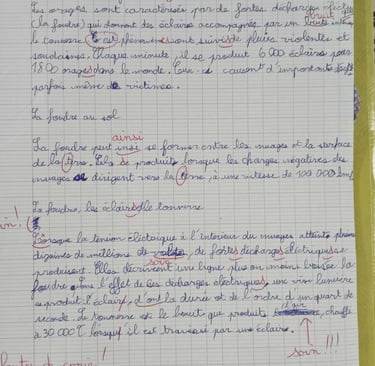 Les orages sont caractérisés par de fortes décharges élect
(la foudre) qui donnent des éclairs accompagnés par un bruit
le tonnerre. Ces phénomènes sont suivis de pluies violentes et
soudaines. Chaque minute, il se produit 6 000 éclairs pour
1800 orages dans le monde. Ceux-ci causent d'importants
parfois même de victimes.
La foudre au sol
ainsi
La foudre peut insi se former entre les nuages et la surface
de la terre. Cela se produit lorsque les charges négatives des
nuages se dirigent vers la terre, à une vitesse de 100 000 km/
La foudre, les éclairs, le tonnerre
Lorsque la tension électrique à l'intérieur du nuages atteint plusieurs
dizaines de millions de de fortes décharges électriques se
soin
produisent. Elles décrivent une ligne plus ou moins brisée la
foudre. Sous l'effet de ces décharges électriques, une vive lumière
se produit l'éclair, dont la durée est de l'ordre d'un quart de
seconde. Le tonnerre est le bruit que produit l'air chauffé
à 30 000 °C lorsqu'il est traversé par une éclaire.
soin !!!